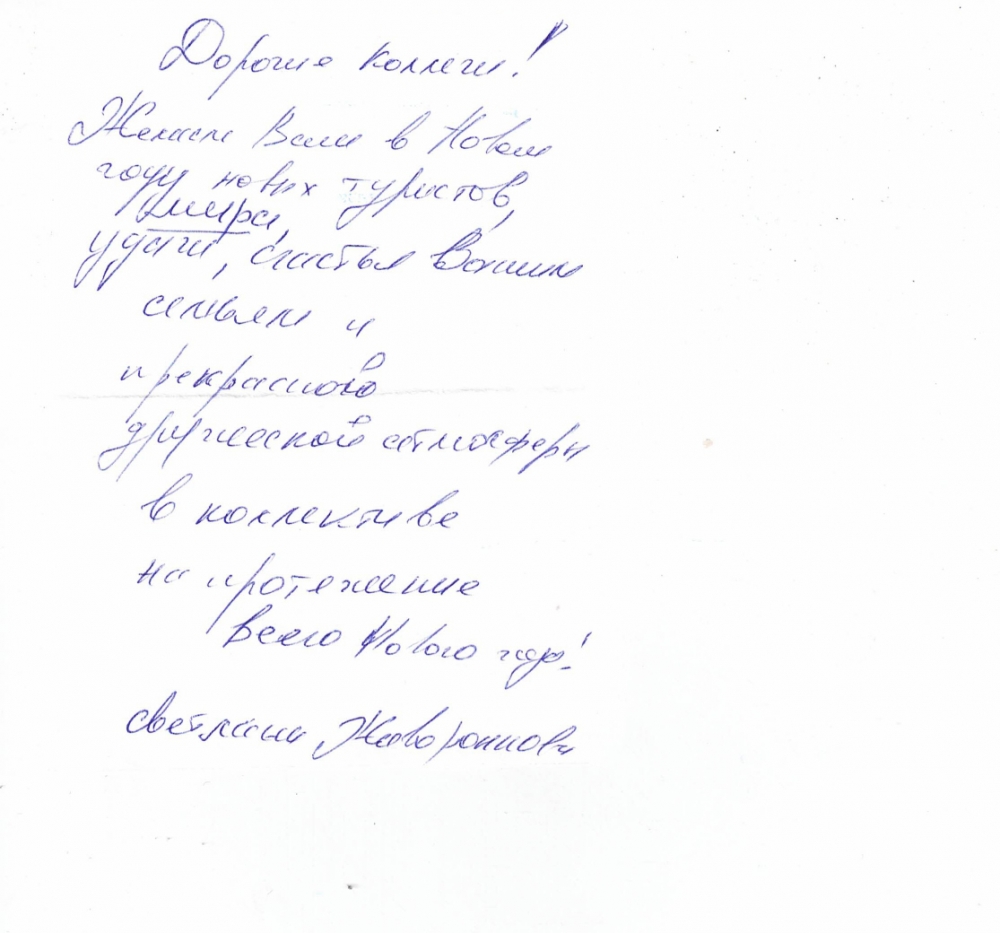 Дорогие коллеги!
Желаем Вам в Новом
году новых туристов,
мира,
удачи, счастья Вашим
семьям и
прекрасной
дружеской атмосферы
в коллективе
на протяжение
всего Нового года!
Светлана Жаворонкова